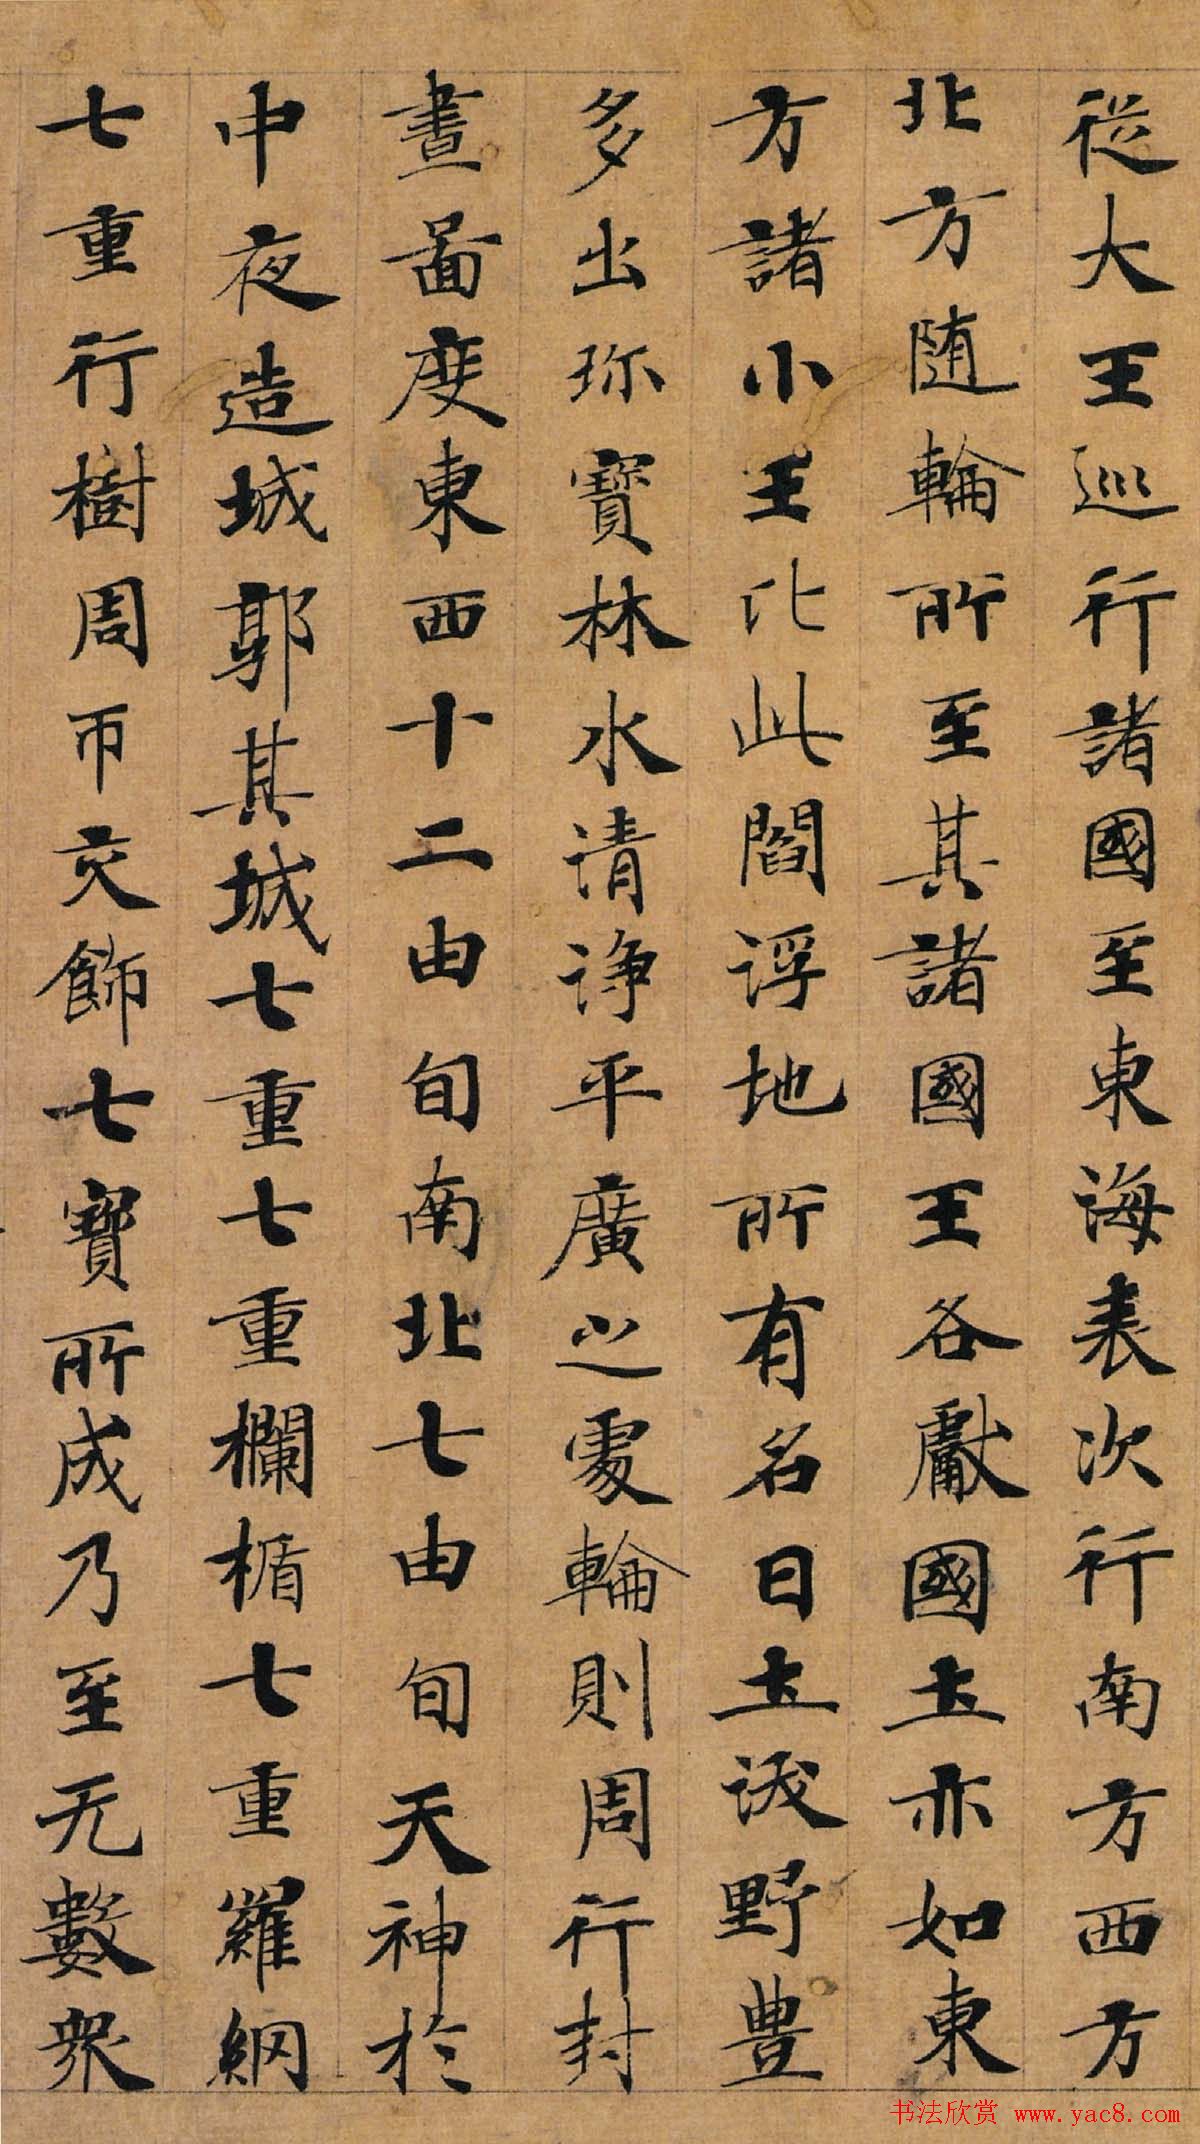 從大王巡行諸國至東海表次行南方西方
北方随輪所至其諸國王各獻國土亦如東
方諸小王比此閻浮地所有名曰土沃野豊
多出珎寶林水清淨平廣之處輪則周行封
畫圖度東西十二由旬南北七由旬天神於
中夜造城郭其城七重七重欄楯七重羅網
七重行樹周帀交飾七寶所成乃至无數衆
书法欣赏 www.yac8.com